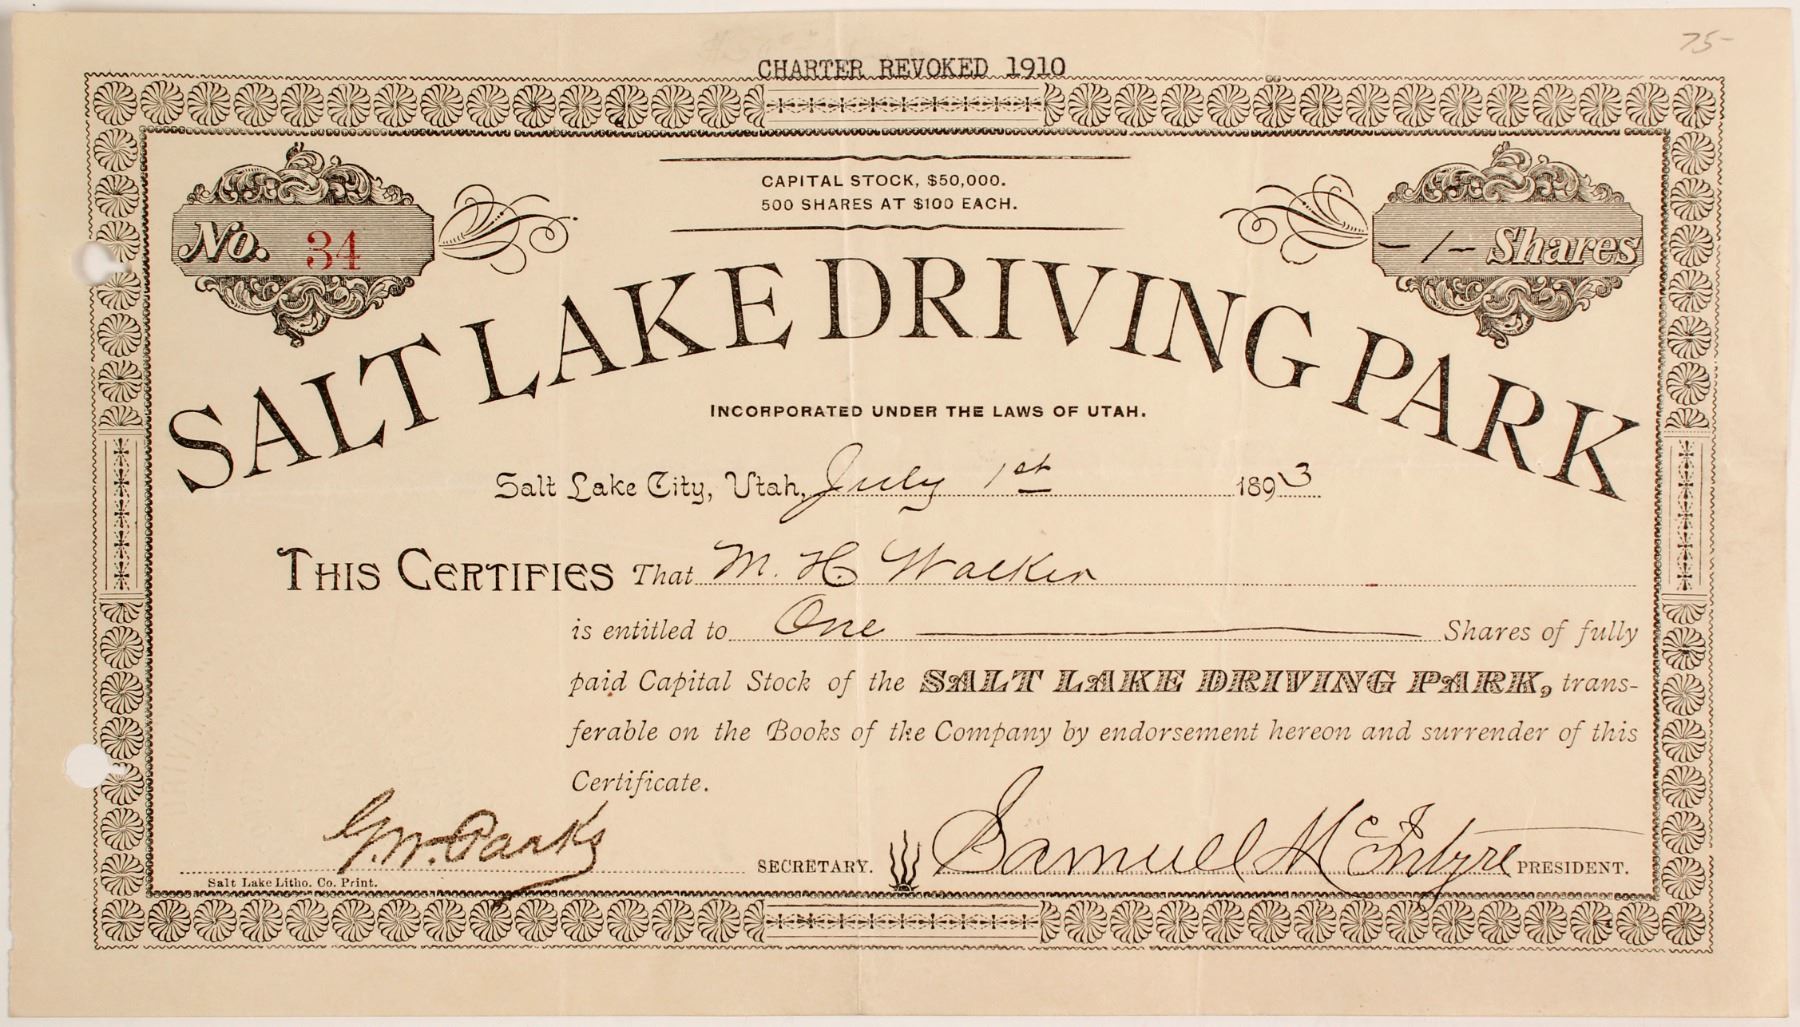 75-
CHARTER REVOKED 1910
CAPITAL STOCK, $50,000.
500 SHARES AT $100 EACH.
No. 34
-1- Shares
SALT LAKE DRIVING PARK
INCORPORATED UNDER THE LAWS OF UTAH.
Salt Lake City, Utah, July 1st 1893
THIS CERTIFIES That M. H. Walker
is entitled to One Shares of fully
paid Capital Stock of the SALT LAKE DRIVING PARK, trans-
ferable on the Books of the Company by endorsement hereon and surrender of this
Certificate.
G.W. Parks SECRETARY. Samuel McIntyre PRESIDENT.
Salt Lake Litho. Co. Print.